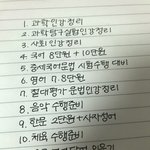 1. 과학인강정리
2. 과학탐구실험인강정리
3. 사회인강정리
4. 국어 8단원 + 10단원
5. 중세국어문법 시험수행 대비
6. 영어 7. 8단원
7. 절대평가 문법인강정리
8. 음악 수행준비
9. 한문 2단원 + 사자성어
10. 체육 수행준비